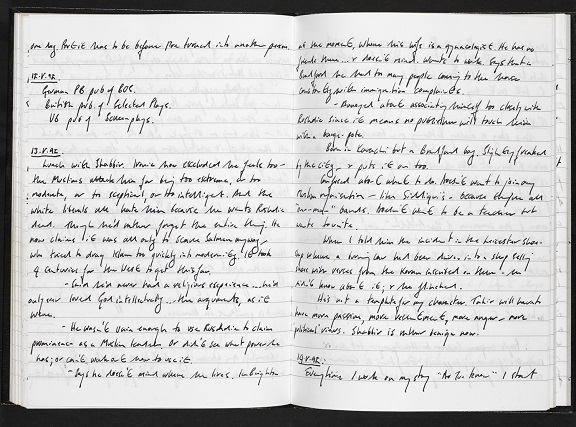 one day. But it has to be before I've turned into another person.
12.V.92.
German PB pub of BOS.
British pub. of Selected Plays.
US pub of Screenplays.
13.V.92.
Lunch with Shabbir. Ironic how excluded he feels too -
the Muslims attack him for being too extreme, or too
moderate, or too sceptical, or too intelligent. And the
white liberals all hate him because he wants Rushdie
dead. Though he'd rather forget the entire thing. He
now claims it was all only to scare Salman anyway,
who tried to drag Islam too quickly into modernity. It took
centuries for the West to get this far.
- Said he'd never had a religious experience... he'd
only ever loved God intellectually... the arguments, as it
were.
- He wasn't vain enough to use Rushdie to claim
prominence as a Muslim leader. Or didn't see what power he
has; or can't work out how to use it.
- Says he doesn't mind where he lives. In Brighton
at the moment, where his wife is a gynacologist. He has no
friends there... & doesn't mind. Wants to write. Says that in
Bradford he had too many people coming to the house
constantly with immigration complaints.
- Worried about associating himself too closely with
Rushdie since it means no publisher will touch him
with a barge-pole.
Born in Karachi but a Bradford boy. Slightly freaked
by the city, & puts it on too.
Confused about what to do. Doesn't want to join any
Muslim organisation - like Siddiqui's - because they're all
"one-man" bands. Doesn't want to be a teacher but
wants to write.
When I told him the incident in the Leicester shoe-
shop where a burning car had been driven into a shop selling
shoes with verses from the Koran inscribed on them he
didn't know about it; & he flinched.
He's not a template for my character. Tahir will have to
have more passion, more vehemence, more anger - more
political views. Shabbir is rather benign now.
14.V.92.
Everytime I work on my story I start